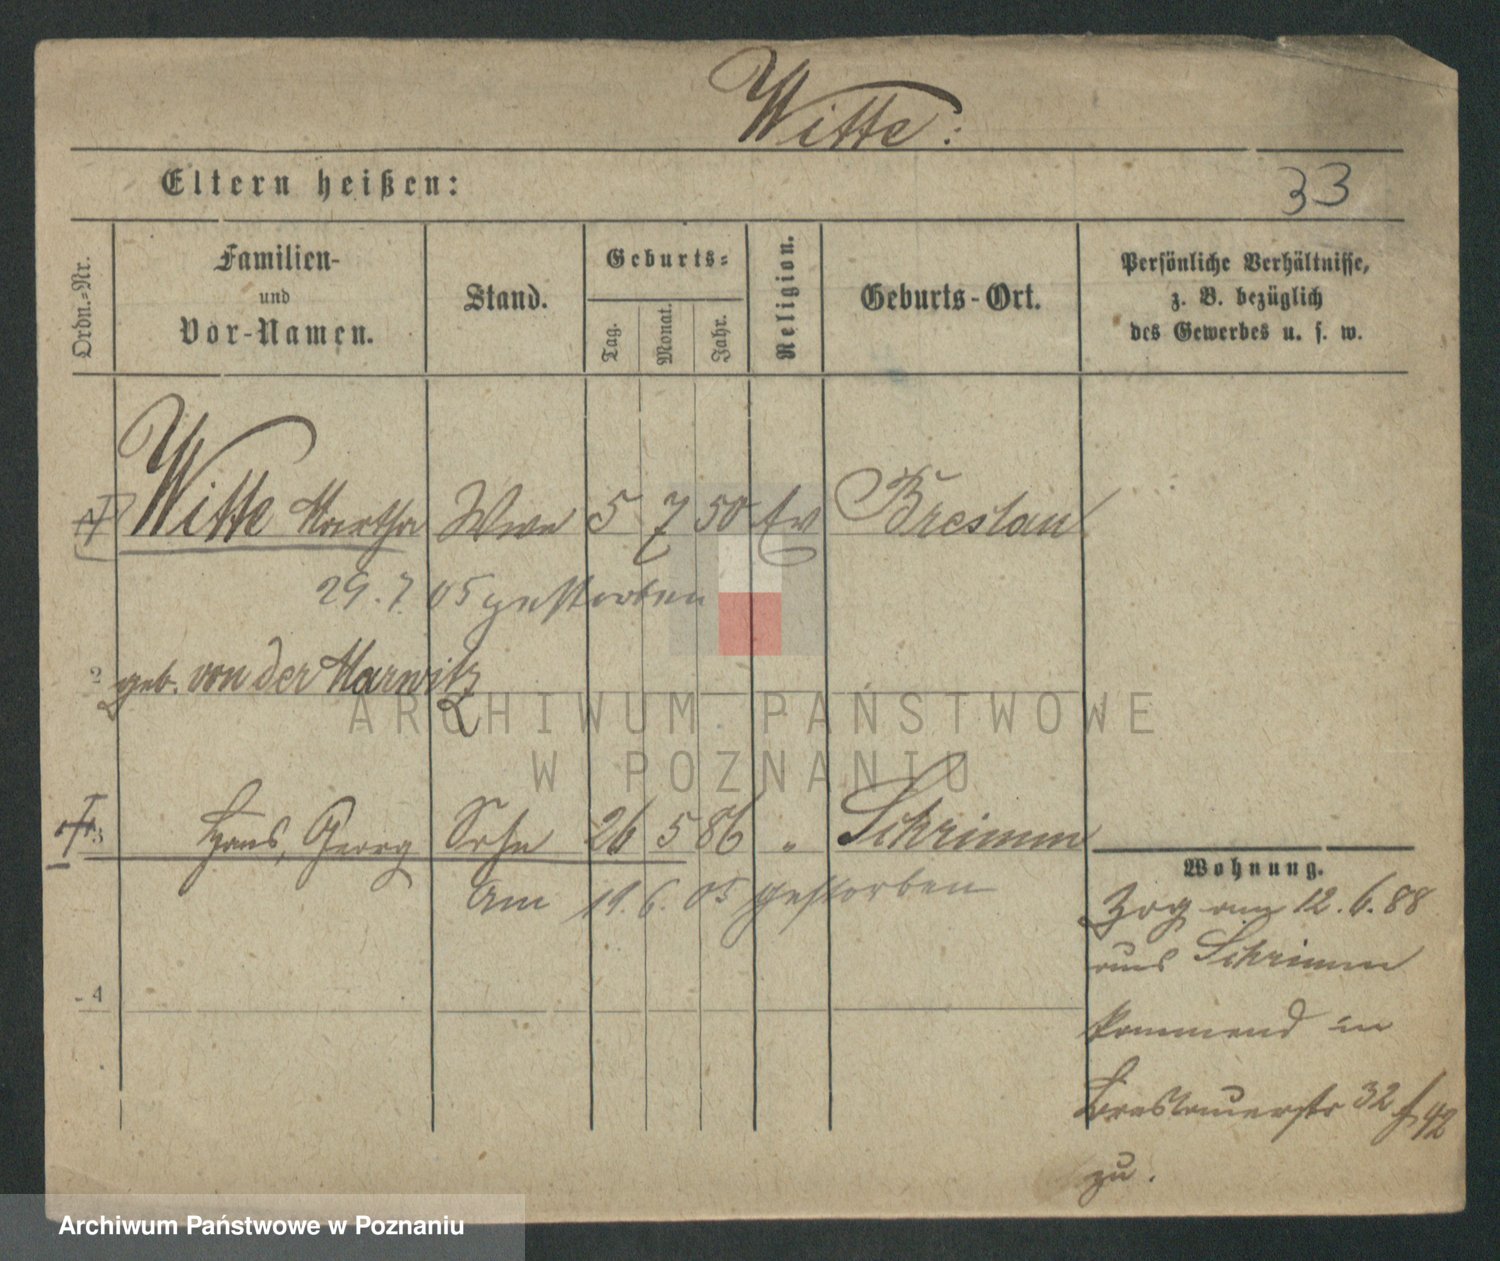 Witte:
Eltern heißen:
33
Ordn.-Nr.
Familien-
und
Vor-Namen.
Stand.
Geburts-
Tag.
Monat.
Jahr.
Religion.
Geburts-Ort.
Persönliche Verhältnisse,
z. B. bezüglich
des Gewerbes u. s. w.
Witte Martha Wwe 5 7 50 Ev Breslau
29. 7. 05 gestorben
2 geb. von der Marwitz
3 Hans, Georg Sohn 26 5 86 " Schrimm
am 19. 6. 05 gestorben
4
Wohnung.
Zog am 12. 6. 88
aus Schrimm
kommend in
Breslauerstr 32
zu.
ARCHIWUM PAŃSTWOWE
W POZNANIU
Archiwum Państwowe w Poznaniu